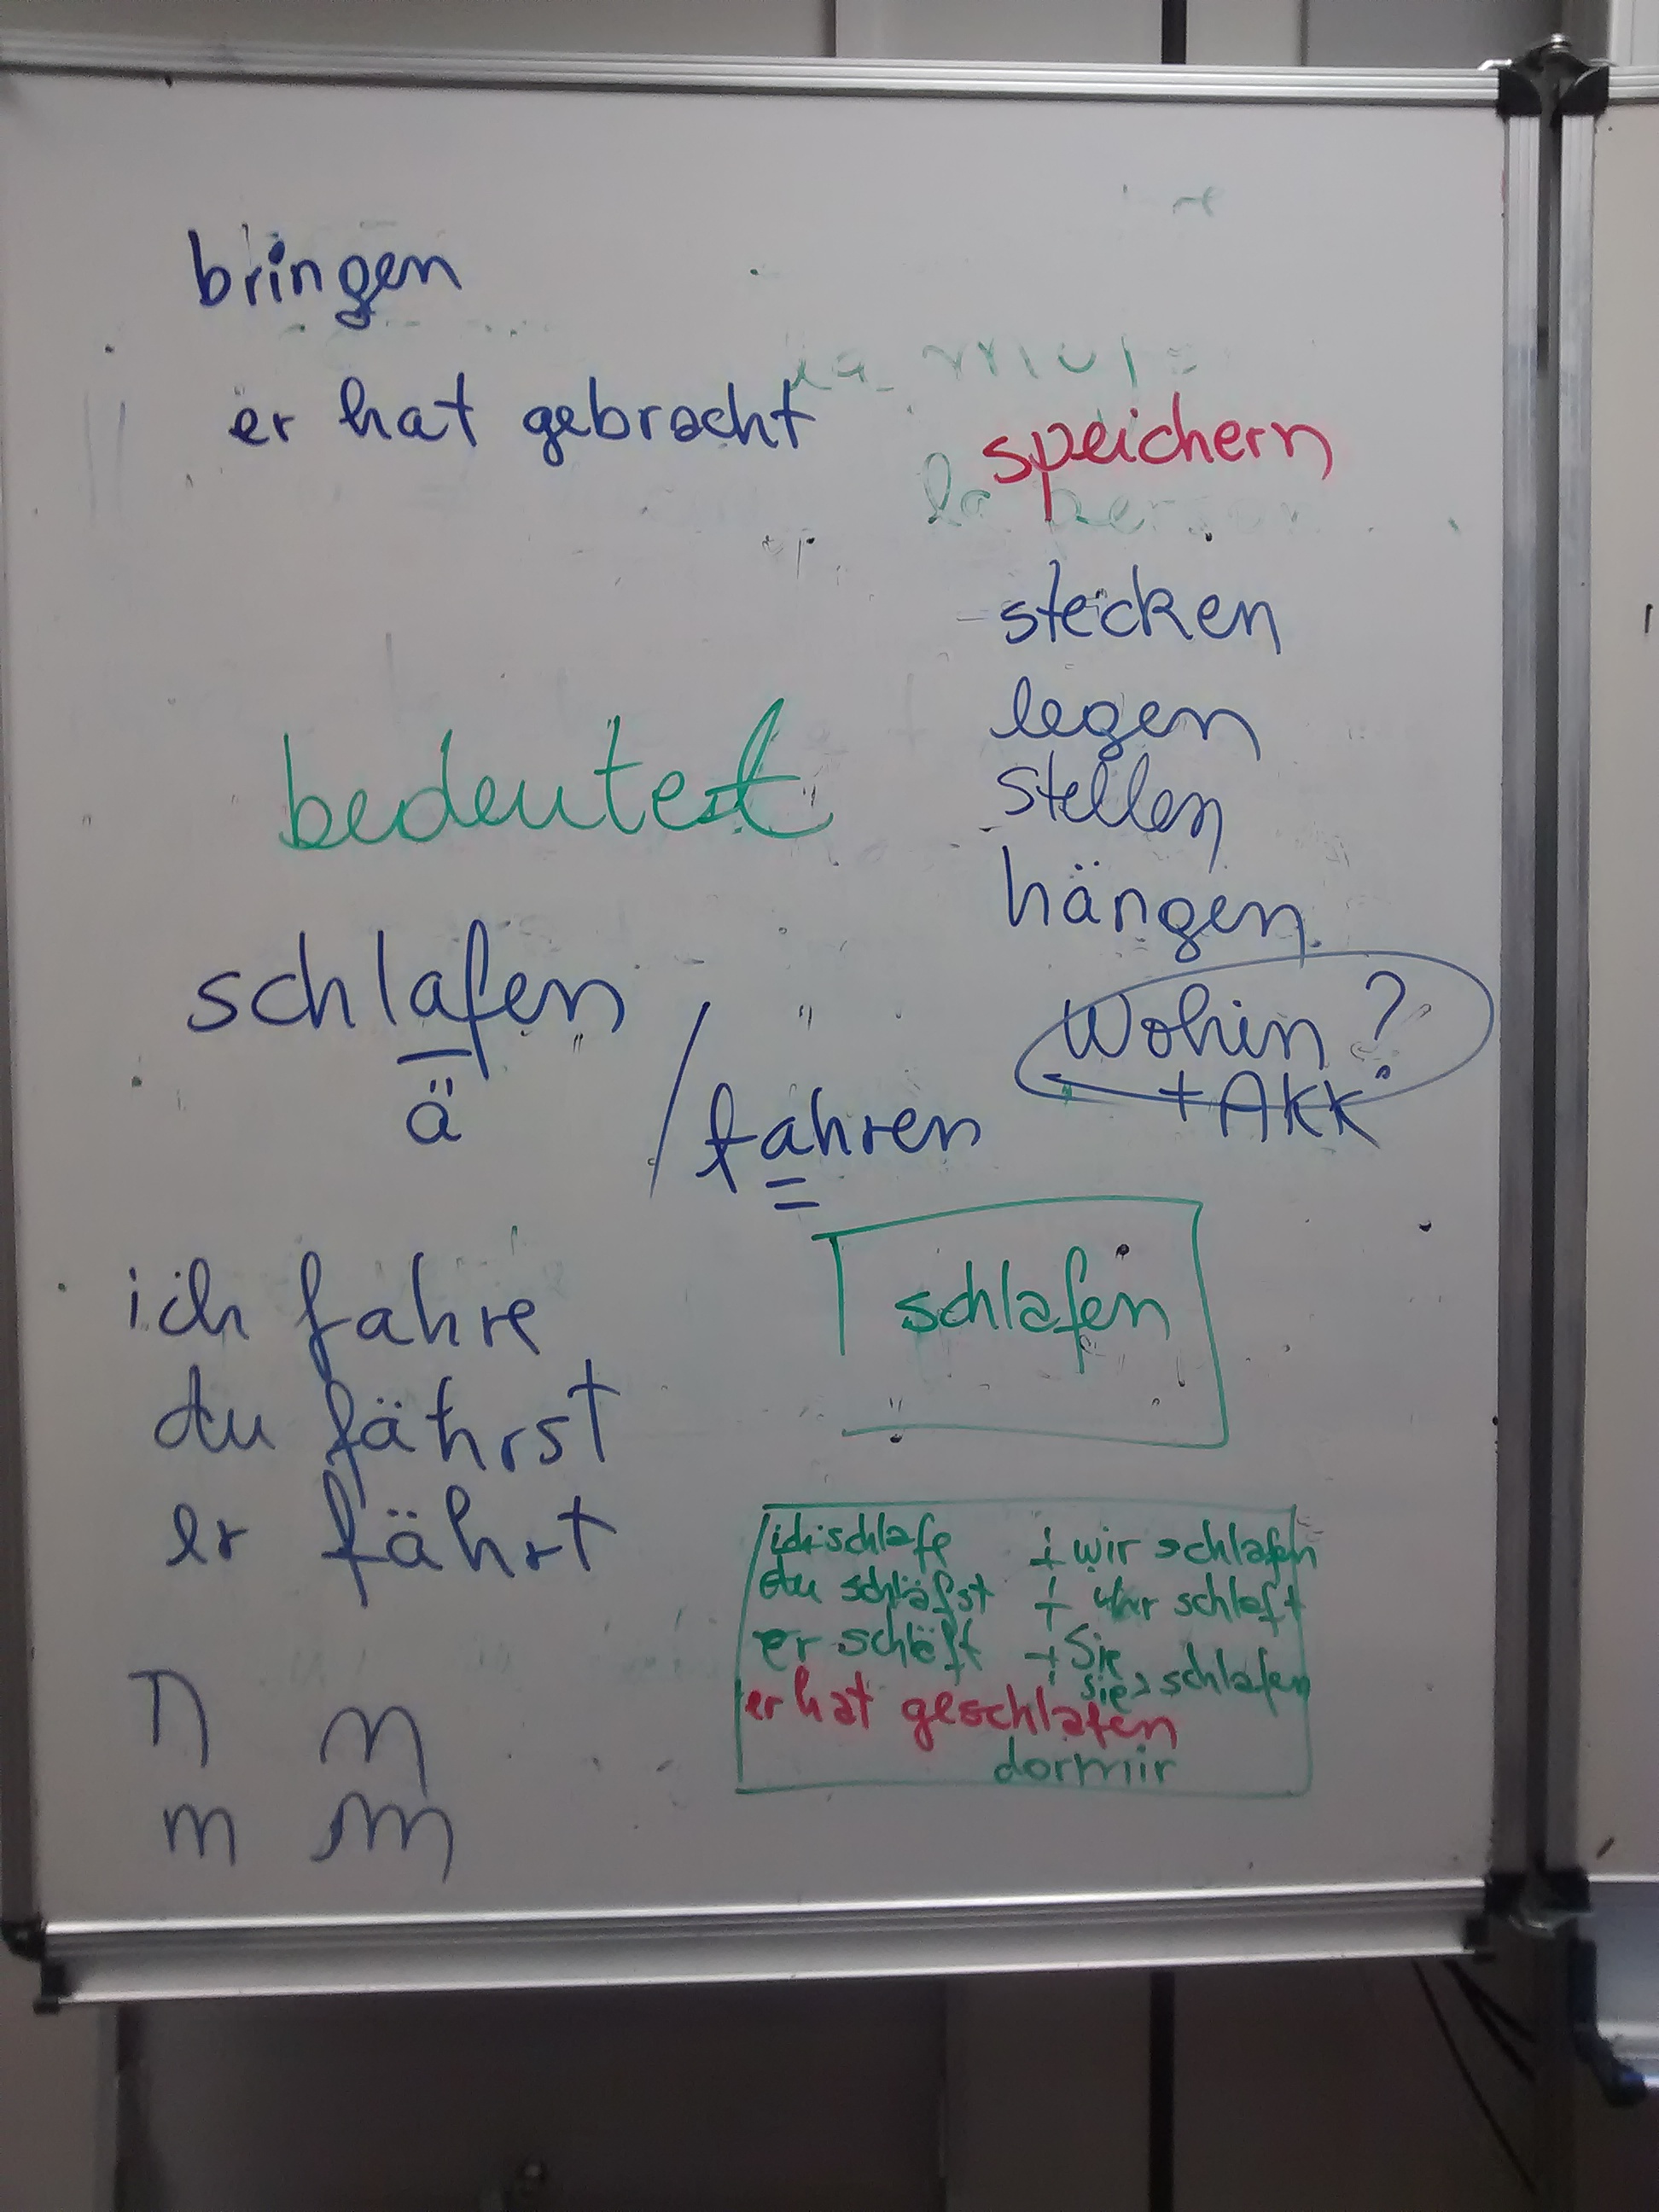 bringen
er hat gebracht
speichern
stecken
legen
stellen
hängen
Wohin?
+ Akk
bedeutest
schlafen
ä
/ fahren
ich fahre
du fährst
er fährt
schlafen
ich schlafe + wir schlafen
du schläfst + ihr schlaft
er schläft + Sie
sie schlafen
er hat geschlafen
dormir
n n
m m